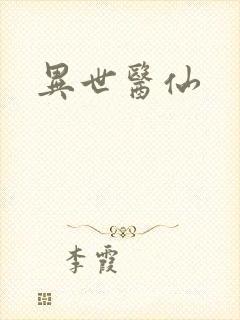 異世醫仙
李霞